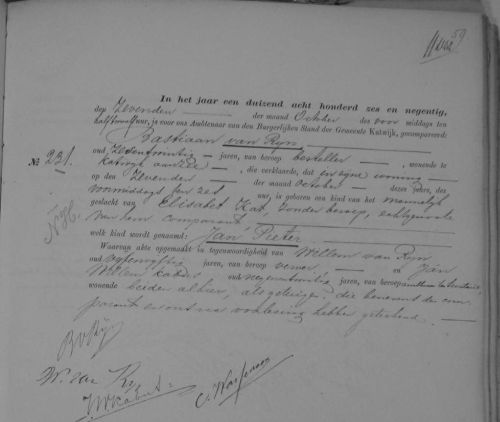 59
In het jaar een duizend acht honderd zes en negentig,
den Zevenden der maand October des voor middags ten
half twaalf ure, is voor ons Ambtenaar van den Burgerlijken Stand der Gemeente Katwijk, gecompareerd:
Bastiaan van Rijn
No 231.
oud zevenentwintig jaren, van beroep besteller, wonende te
Katwijk aan Zee, die verklaarde, dat en eigne woning
op den Zevenden der maand October dezes jaars, des
voormiddags ten zes ure, is geboren een kind van het mannelijk
geslacht van Elisabet Kat, zonder beroep, echtgenoote
van hem comparant
welk kind wordt genaamd: Jan Pieter
N.H.
Waarvan akte opgemaakt in tegenwoordigheid van Willem van Rijn
oud vijfenvijftig jaren, van beroep en Jan
Willem oud negenentwintig jaren, van beroep
wonende beiden alhier, als getuigen, die benevens den com
parant en ons na voorlezing hebben geteekend.
B v Rijn
W. van Rijn